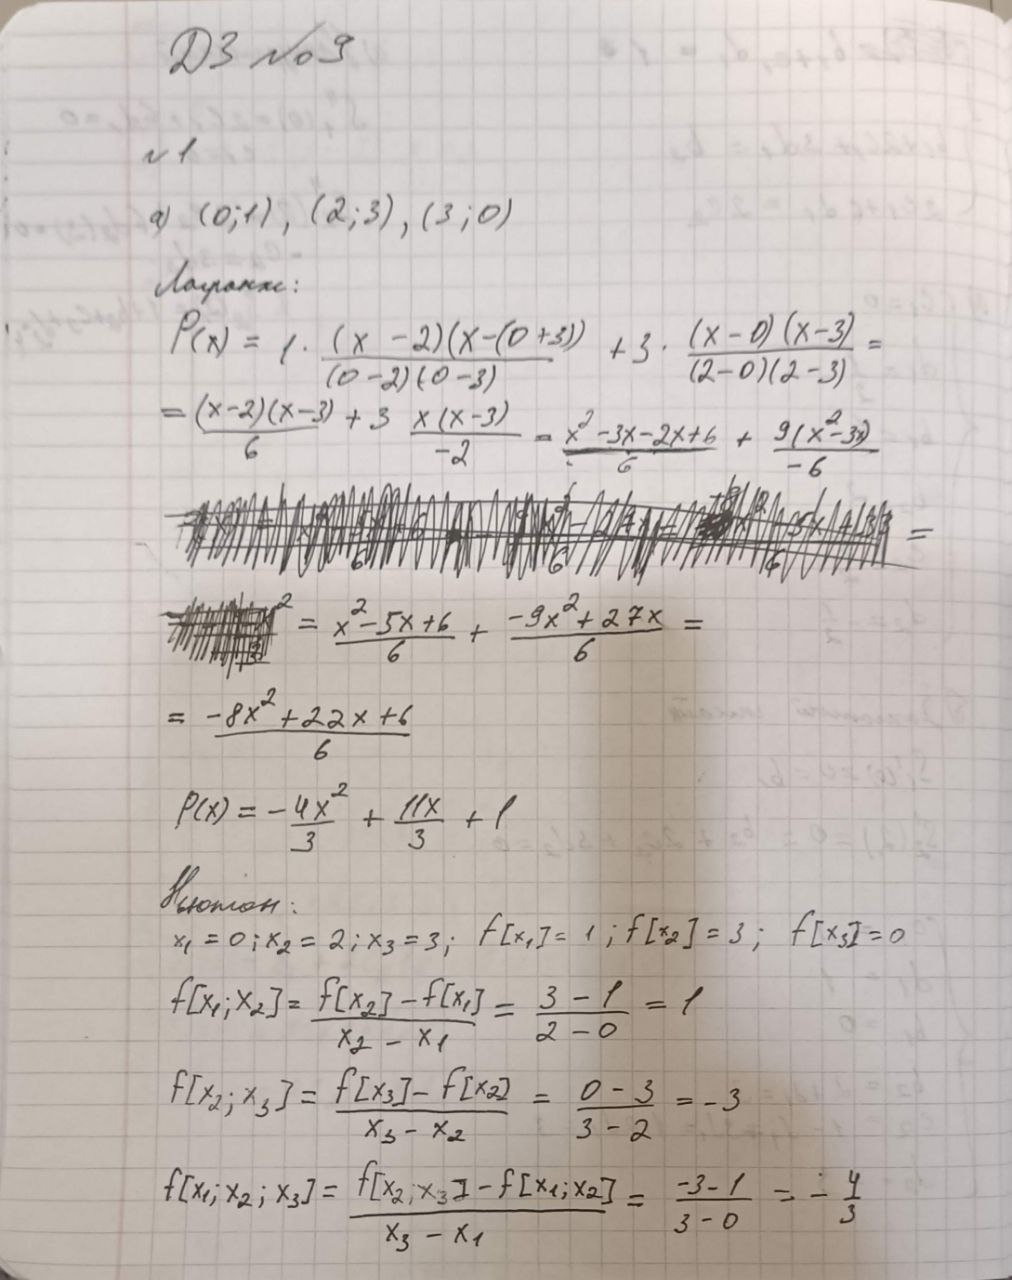 ДЗ №9
№1
а) (0;1), (2;3), (3;0)
Лагранж:
P(x) = 1 · (x - 2)(x-(0+3)) / (0-2)(0-3) + 3 · (x-0)(x-3) / (2-0)(2-3) =
= (x-2)(x-3) / 6 + 3 x(x-3) / -2 = x² -3x-2x+6 / 6 + 9(x²-3x) / -6
=
= x²-5x+6 / 6 + -9x²+27x / 6 =
= -8x²+22x+6 / 6
P(x) = - 4x² / 3 + 11x / 3 + 1
Ньютон:
x₁ = 0; x₂ = 2; x₃ = 3; f[x₁] = 1; f[x₂] = 3; f[x₃] = 0
f[x₁; x₂] = f[x₂] - f[x₁] / x₂ - x₁ = 3 - 1 / 2 - 0 = 1
f[x₂; x₃] = f[x₃] - f[x₂] / x₃ - x₂ = 0 - 3 / 3 - 2 = -3
f[x₁; x₂; x₃] = f[x₂; x₃] - f[x₁; x₂] / x₃ - x₁ = -3-1 / 3-0 = - 4 / 3